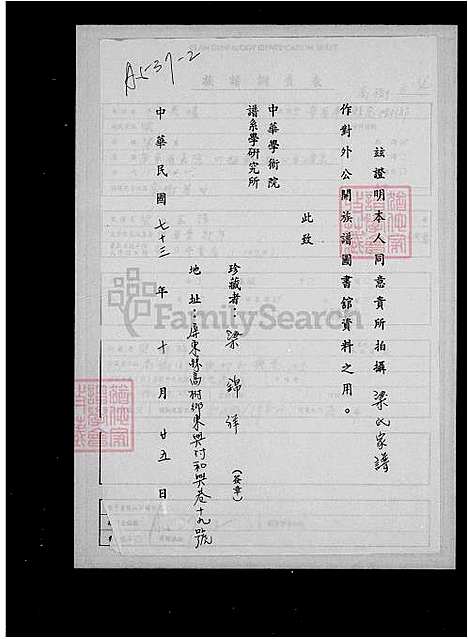 A537-2
茲證明本人同意貴所拍攝 梁氏家譜
作對外公開族譜圖書舘資料之用。
此致
中華學術院
譜系學研究所
珍藏者：梁錦祥 (簽章)
地址：屏東縣高樹鄉東興村和興巷十九號
中華民國七十三年十月廿五日
FamilySearch